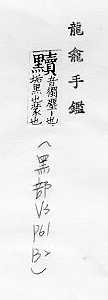 龍龕手鑑
黷
音獨塵丨也
垢黑也蒙也
(黑部V3
P61
B2)